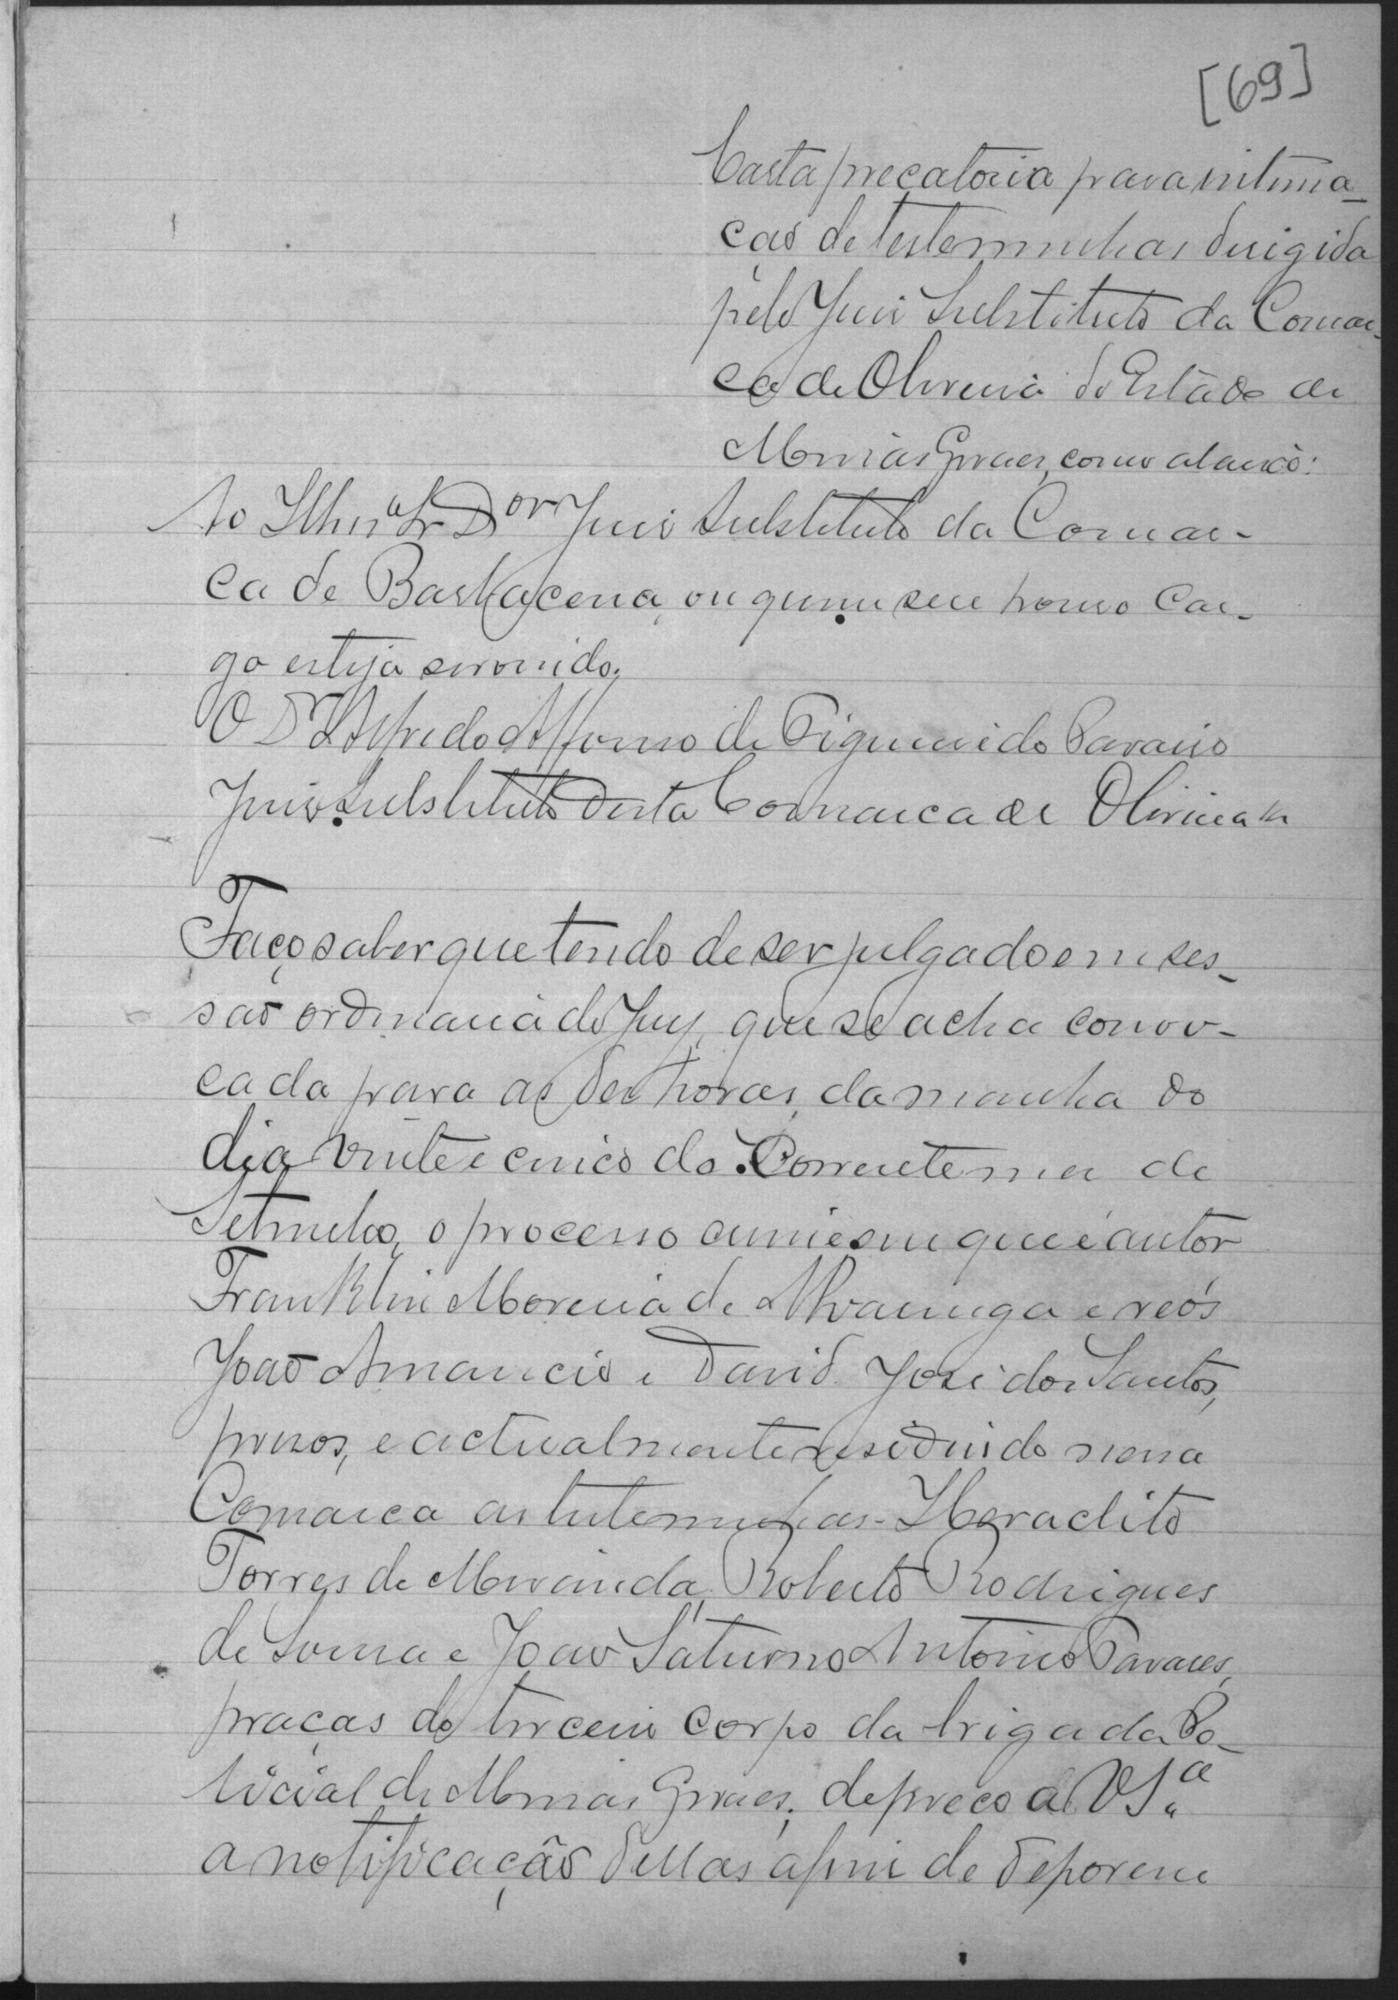 [69]
Carta precatoria para intima_
ção de testemunhas dirigida
pelo Juiz Substituto da Comar_
ca de Oliveira do Estado de
Minas Geraes, como abaixo:
Ao Illmº Sr. Dor Juiz Substituto da Comar-
ca de Barbacena, ou quem seu honroso Car-
go esteja servindo.
O Dr Alfredo Affonso de Figueiredo Paraiso
Juiz Substituto desta Comarca de Oliveira
Faço saber que tendo de ser julgado em ses_
são ordinaria do Jury, que se acha convo-
cada para as dez horas, da manhã do
dia vinte e cinco do Corrente mez de
Setembro, o processo crime em que é autor
Franklin Moreira de Alvarenga e réos
João Amancio e David José dos Santos,
presos, e actualmente residindo nessa
Comarca as testemunhas - Heraclito
Torres de Miranda, Roberto Rodrigues
de Souza e João Saturno Antonio Tavares,
praças do terceiro corpo da brigada Po_
licial de Minas Geraes, depreco a V Sª
a notificação dellas afim de deporem